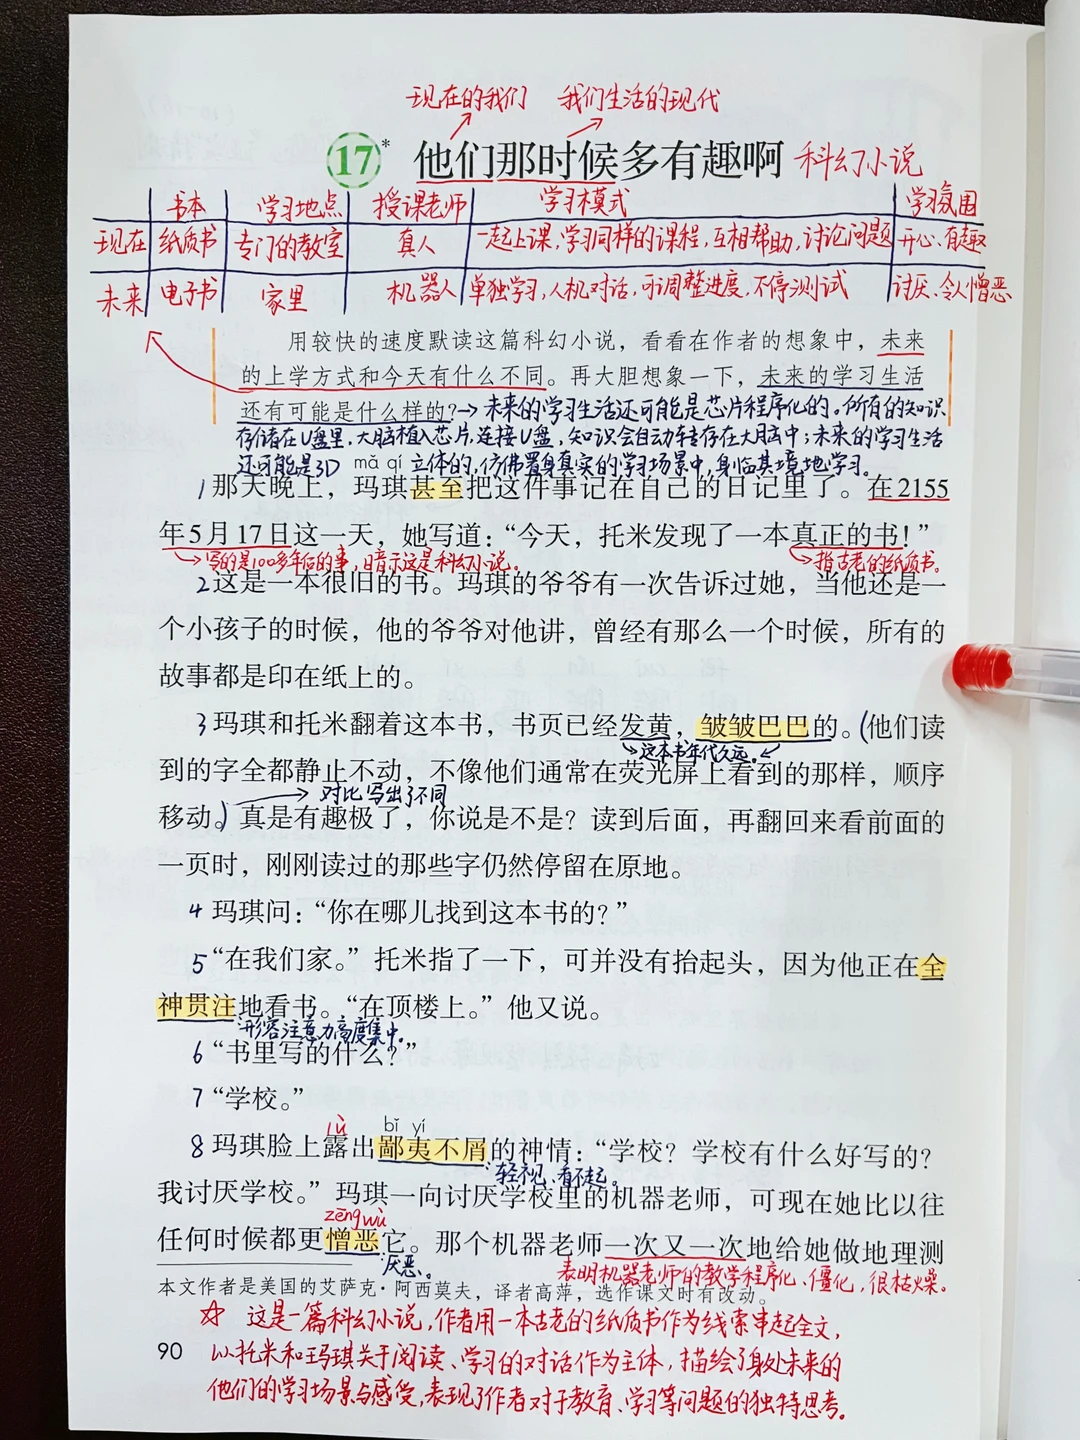 现在的我们 我们生活的现代
17* 他们那时候多有趣啊 科幻小说
书本 学习地点 授课老师 学习模式 学习氛围
现在 纸质书 专门的教室 真人 一起上课,学习同样的课程,互相帮助,讨论问题 开心、有趣
未来 电子书 家里 机器人 单独学习,人机对话,可调整进度,不停测试 讨厌、令人憎恶
用较快的速度默读这篇科幻小说,看看在作者的想象中,未来
的上学方式和今天有什么不同。再大胆想象一下,未来的学习生活
还有可能是什么样的?→未来的学习生活还可能是芯片程序化的。所有的知识
存储在U盘里,大脑植入芯片,连接U盘,知识会自动转存在大脑中;未来的学习生活
还可能是3D立体的,仿佛置身真实的学习场景中,身临其境地学习。
mǎ qí
1那天晚上,玛琪甚至把这件事记在自己的日记里了。在2155
年5月17日这一天,她写道:“今天,托米发现了一本真正的书!”
写的是100多年后的事,暗示这是科幻小说。 指古老的纸质书。
2这是一本很旧的书。玛琪的爷爷有一次告诉过她,当他还是一
个小孩子的时候,他的爷爷对他讲,曾经有那么一个时候,所有的
故事都是印在纸上的。
3玛琪和托米翻着这本书,书页已经发黄,皱皱巴巴的。(他们读
这本书年代久远。
到的字全都静止不动,不像他们通常在荧光屏上看到的那样,顺序
对比写出了不同
移动。)真是有趣极了,你说是不是?读到后面,再翻回来看前面的
一页时,刚刚读过的那些字仍然停留在原地。
4 玛琪问:“你在哪儿找到这本书的?”
5“在我们家。”托米指了一下,可并没有抬起头,因为他正在全
神贯注地看书。“在顶楼上。”他又说。
形容注意力高度集中。
6“书里写的什么?”
7“学校。”
lù bǐ yí
8玛琪脸上露出鄙夷不屑的神情:“学校?学校有什么好写的?
轻视、看不起。
我讨厌学校。”玛琪一向讨厌学校里的机器老师,可现在她比以往
zēng wù
任何时候都更憎恶它。那个机器老师一次又一次地给她做地理测
厌恶。 表明机器老师的教学程序化、僵化,很枯燥。
本文作者是美国的艾萨克·阿西莫夫,译者高萍,选作课文时有改动。
☆ 这是一篇科幻小说,作者用一本古老的纸质书作为线索串起全文,
90 以托米和玛琪关于阅读、学习的对话作为主体,描绘了身处未来的
他们的学习场景与感受,表现了作者对于教育、学习等问题的独特思考。